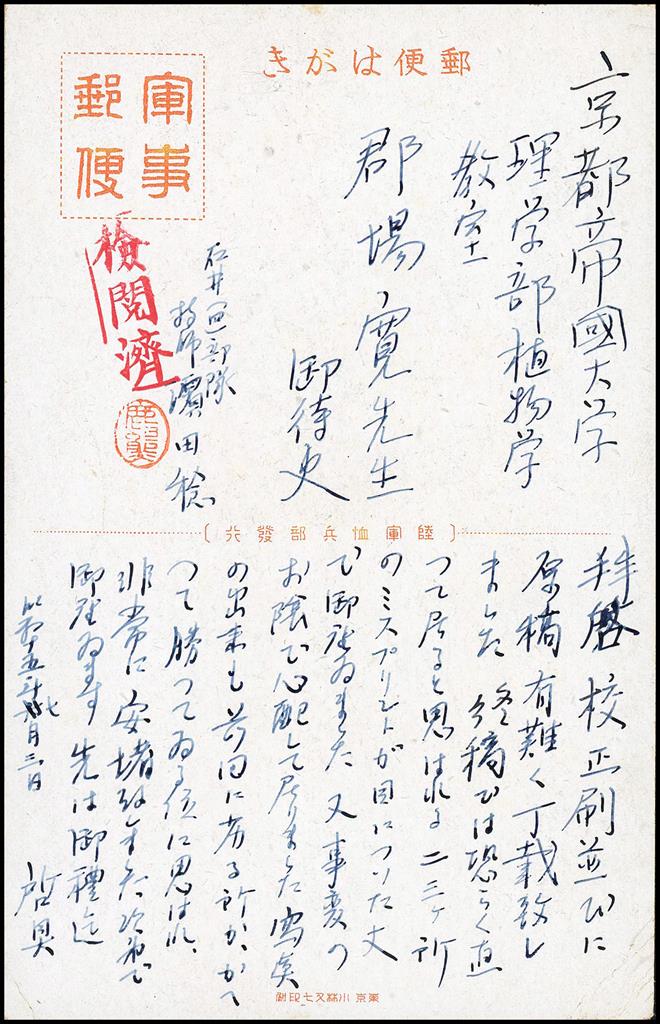 郵便はがき
軍事
郵便
京都帝國大学
理学部植物学
教室
郡場寛先生
御待史
石井(四)部隊
技師 濱田稔
檢閲濟
〔陸軍恤兵部發行〕
拝啓 校正刷並びに
原稿有難く丁載致し
ました 終稿では恐らく直
つて居ると思はれる二三ヶ所
のミスプリントが目についた丈
で御座ゐました 又事変の
お陰で心配して居りました寫真
の出来も前回に劣る所か、かへ
つて勝つてゐる位に思はれ、
非常に安堵致しました次第で
御座ゐます 先は御禮迄
昭和十五年七月三日
敬具
東京 小林又七印刷